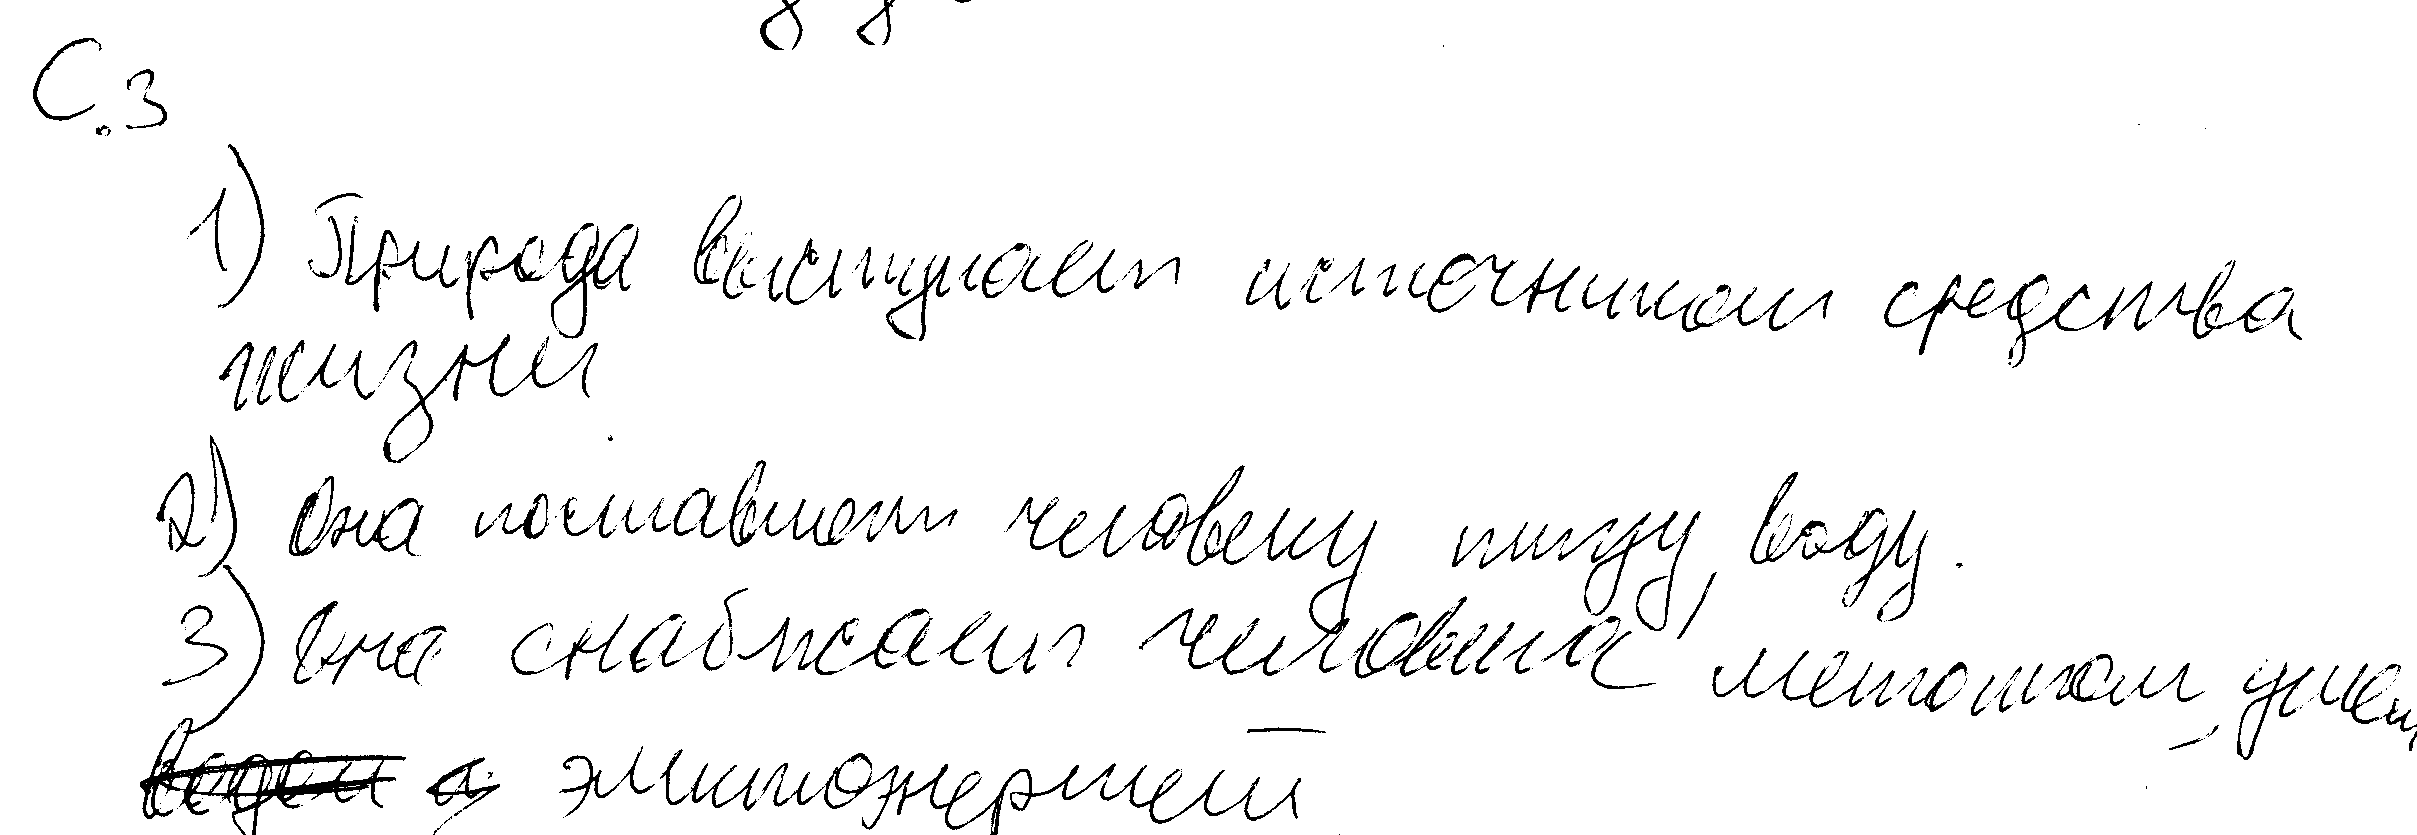 С.3
1) Природа выступает источником средства
жизни
2) Она поставляет человеку пищу, воду.
3) Она снабжает человека, углем,
эликтоэнергией